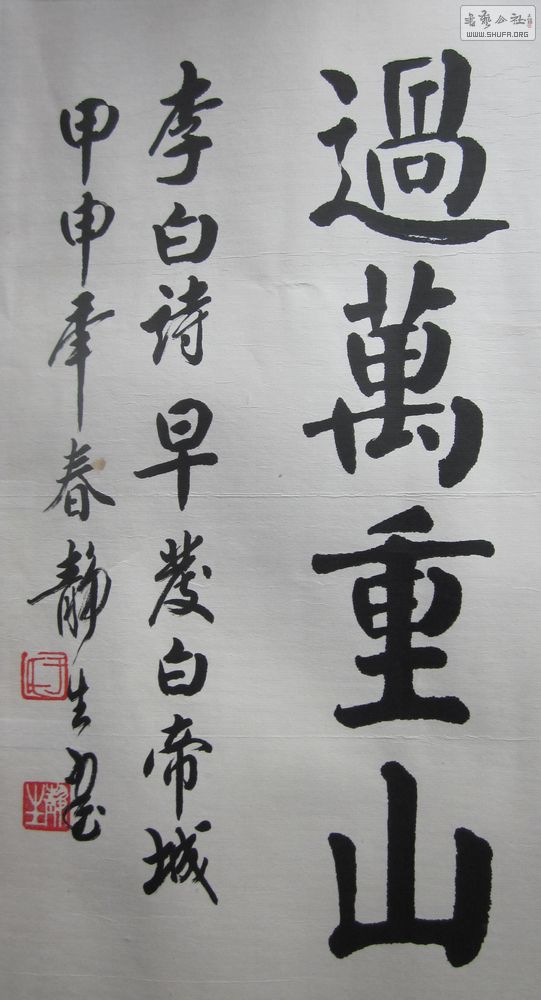 過萬重山
李白诗早發白帝城
甲申年春靜生书
書藝公社
WWW.SHUFA.ORG